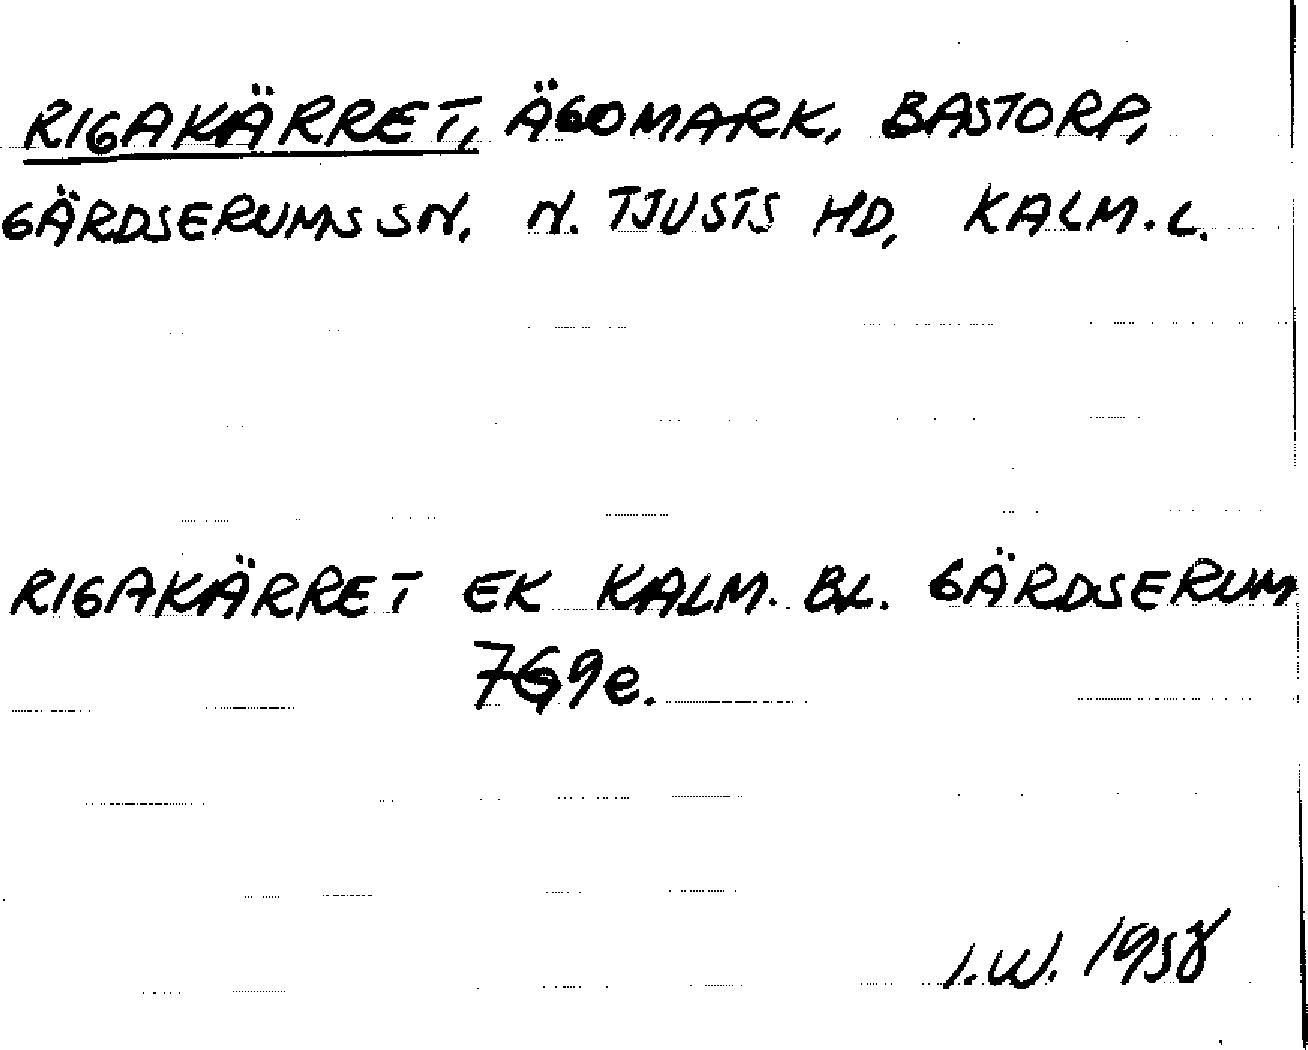 RIGAKÄRRET, ÄGOMARK, BASTORP,
GÄRDSERUMS SN, N. TJUSTS HD, KALM. L.
RIGAKÄRRET EK KALM. BL. GÄRDSERUM
769e.
I.W. 1958